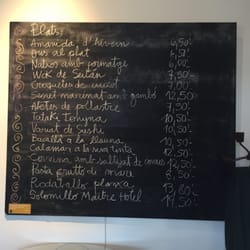 Plats:
Amanida d'hivern 6,50.-
Ous al plat 6,50.-
Natxos amb formatge 6,00.-
Wok de Seitán 7,50.-
Croquetes de cuixot 7,00.-
marinat amb gambó 12,50.-
Aletes de pollastre 7,50.-
Tataki Tonyina 10,50.-
Variat de Sushi 10,50.-
Bacallà a la llauna 10,50.-
Calamar a la seva tinta 12,50.-
Corvina amb saltejat de 12,50.-
Pasta frutti di mare 8,50.-
Rodaballo planxa 13,80.-
Solomillo Maître Hotel 14,50.-